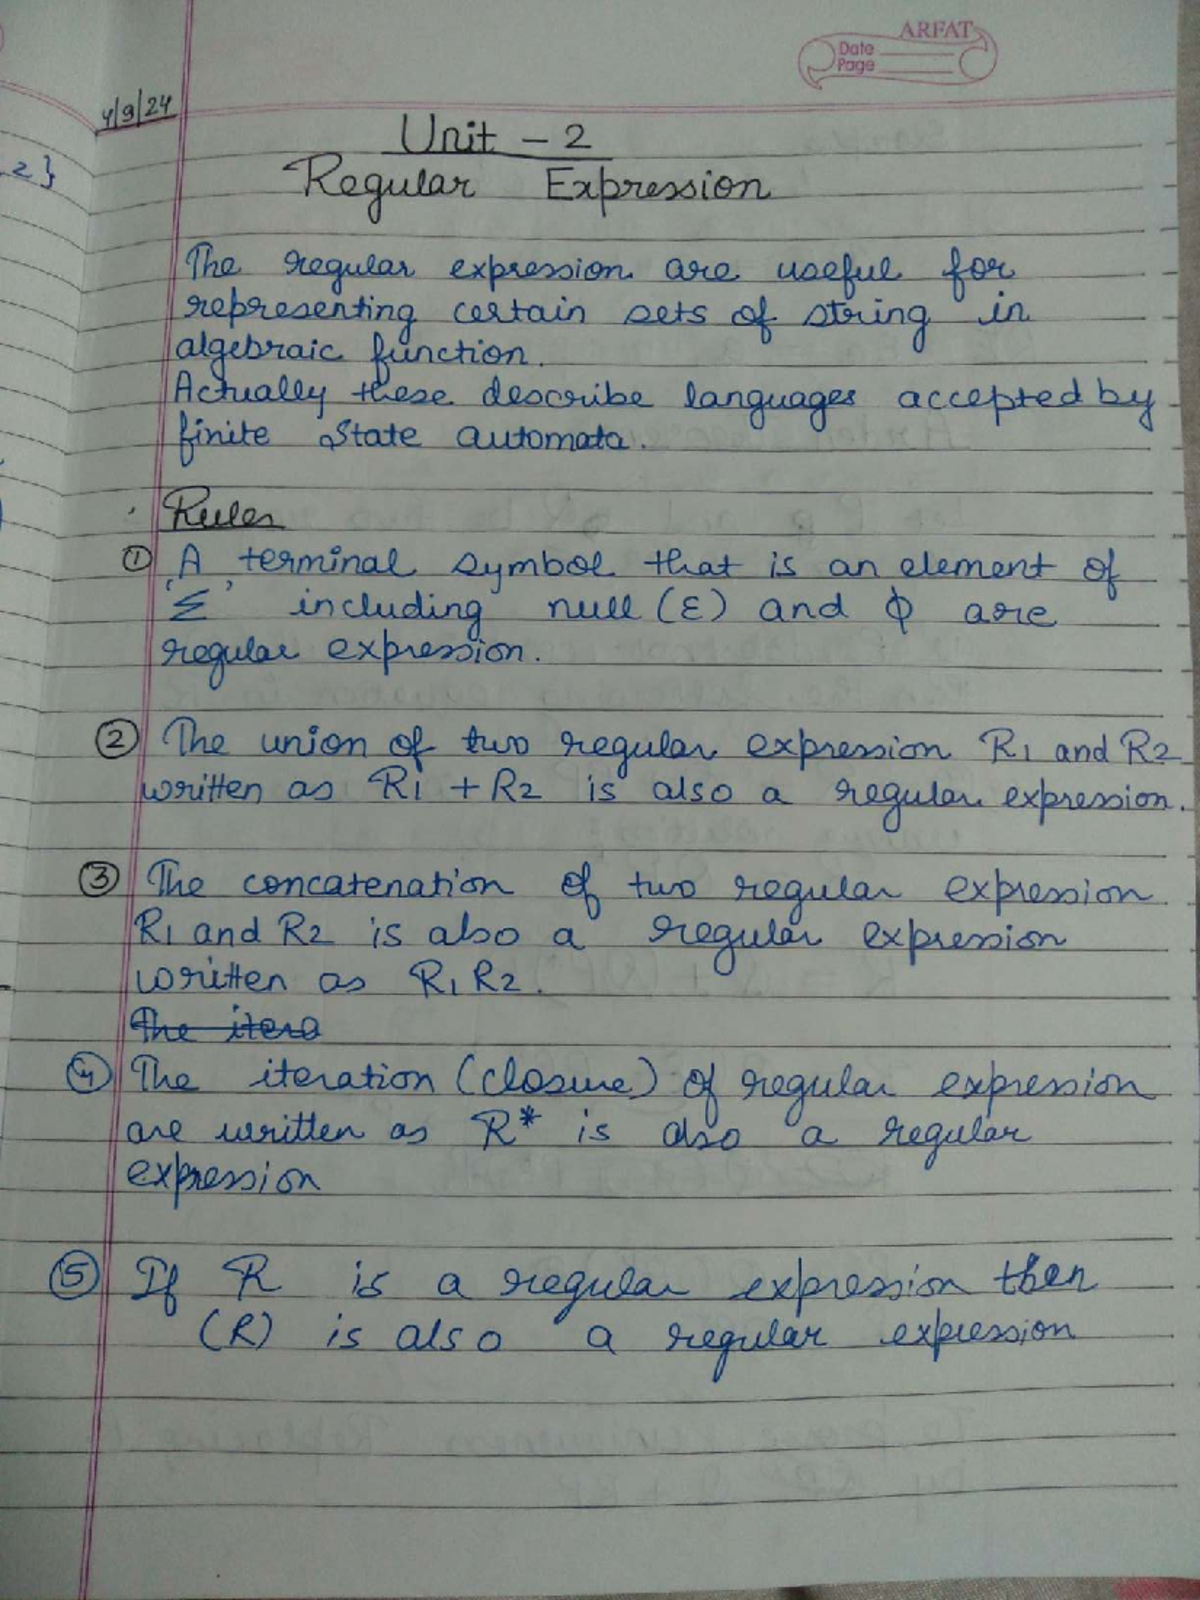 ARFAT
Date
Page
4/9/24
2}
Unit - 2
Regular Expression
The regular expression are useful for
representing certain sets of string in
algebraic function.
Actually these describe languages accepted by
finite State automata.
Rules
① A terminal symbol that is an element of
'Σ' including null (ε) and ϕ are
regular expression.
② The union of two regular expression R1 and R2
written as R1 + R2 is also a regular expression.
③ The concatenation of two regular expression
R1 and R2 is also a regular expression
written as R1 R2.
The itera
④ The iteration (closure) of regular expression
are written as R* is also a regular
expression
⑤ If R is a regular expression then
(R) is also a regular expression